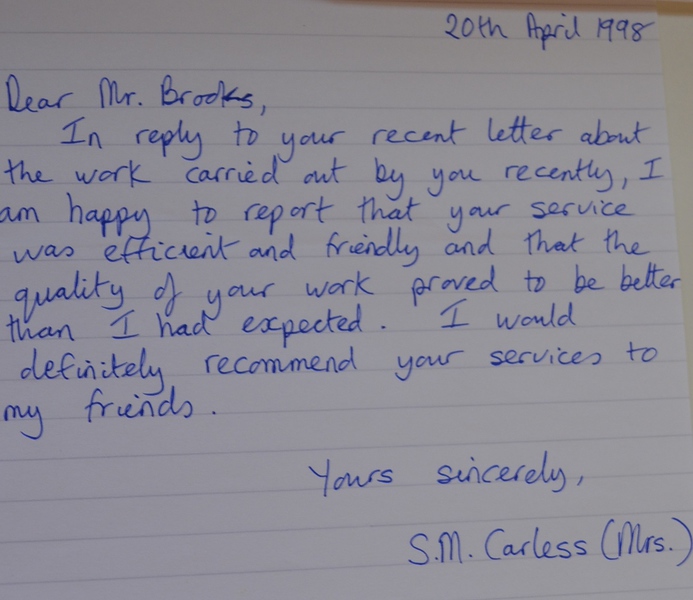 20th April 1998
Dear Mr. Brooks,
In reply to your recent letter about
the work carried out by you recently, I
am happy to report that your service
was efficient and friendly and that the
quality of your work proved to be better
than I had expected. I would
definitely recommend your services to
my friends.
Yours sincerely,
S.M. Carless (Mrs.)